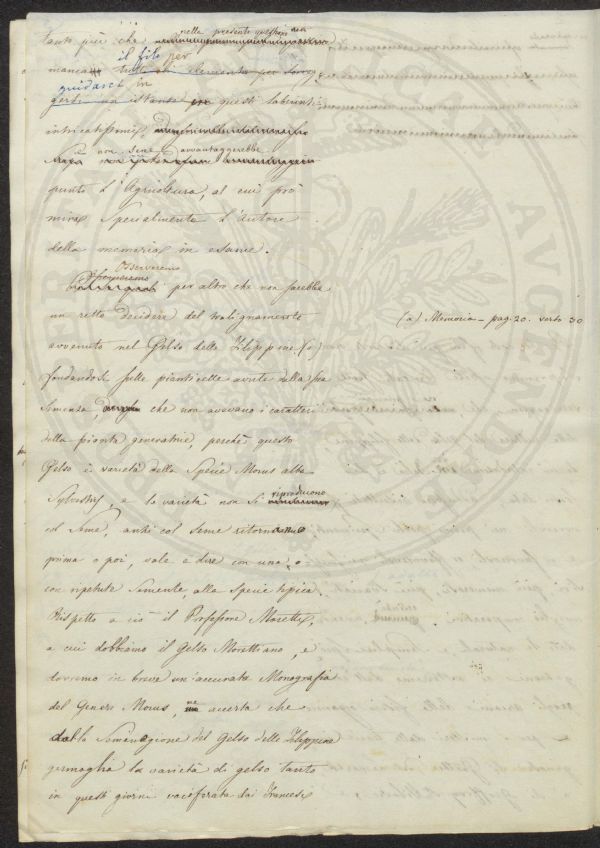 nella presente quistione non
tanto più che
il filo per
manca tutti gli elementi per
guidarci in
un istante questi laberinti
intricatissimi,
e non sene avvantaggerebbe
punto l'Agricoltura, al cui pro
mira specialmente l'autore
della memoria in esame.
Osserveremo
per altro che non sarebbe
un retto decidere del
avvenuto nel Gelso delle Filippine (a)
(a) Memoria - pag. 20. verso 30
fondandosi sulle pianticelle avute dalla sua
semenza, che non avevano i caratteri
della pianta generatrice, perchè questo
Gelso è varietà della Specie Morus alba
Sylvestris, e la varietà non si riproducono
col seme, anzi col seme ritornano
prima o poi, vale a dire con una, o
con ripetute semente alla specie tipica.
Rispetto a ciò il Professore Moretti,
a cui dobbiamo il Gelso Morettiano, e
dovremo in breve un'accurata Monografia
del Genere Morus, ne accerta che
dalla Semenzione del Gelso delle Filippine
germoglia la varietà di gelso tanto
in questi giorni vociferata dai Francesi